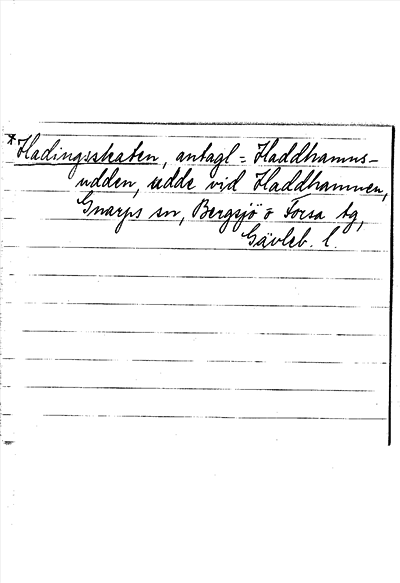 *Hadingsskaten, antagl = Haddhamns-
udden, udde vid Haddhamnen,
Gnarps sn, Bergsjö o Forsa tg,
Gävleb. l.